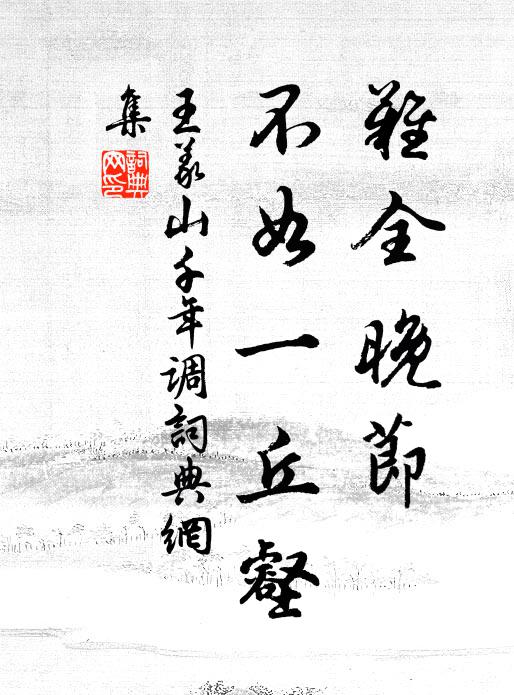 難全晚節
不如一丘壑
王義山千年調詞典網
集
詞典網印